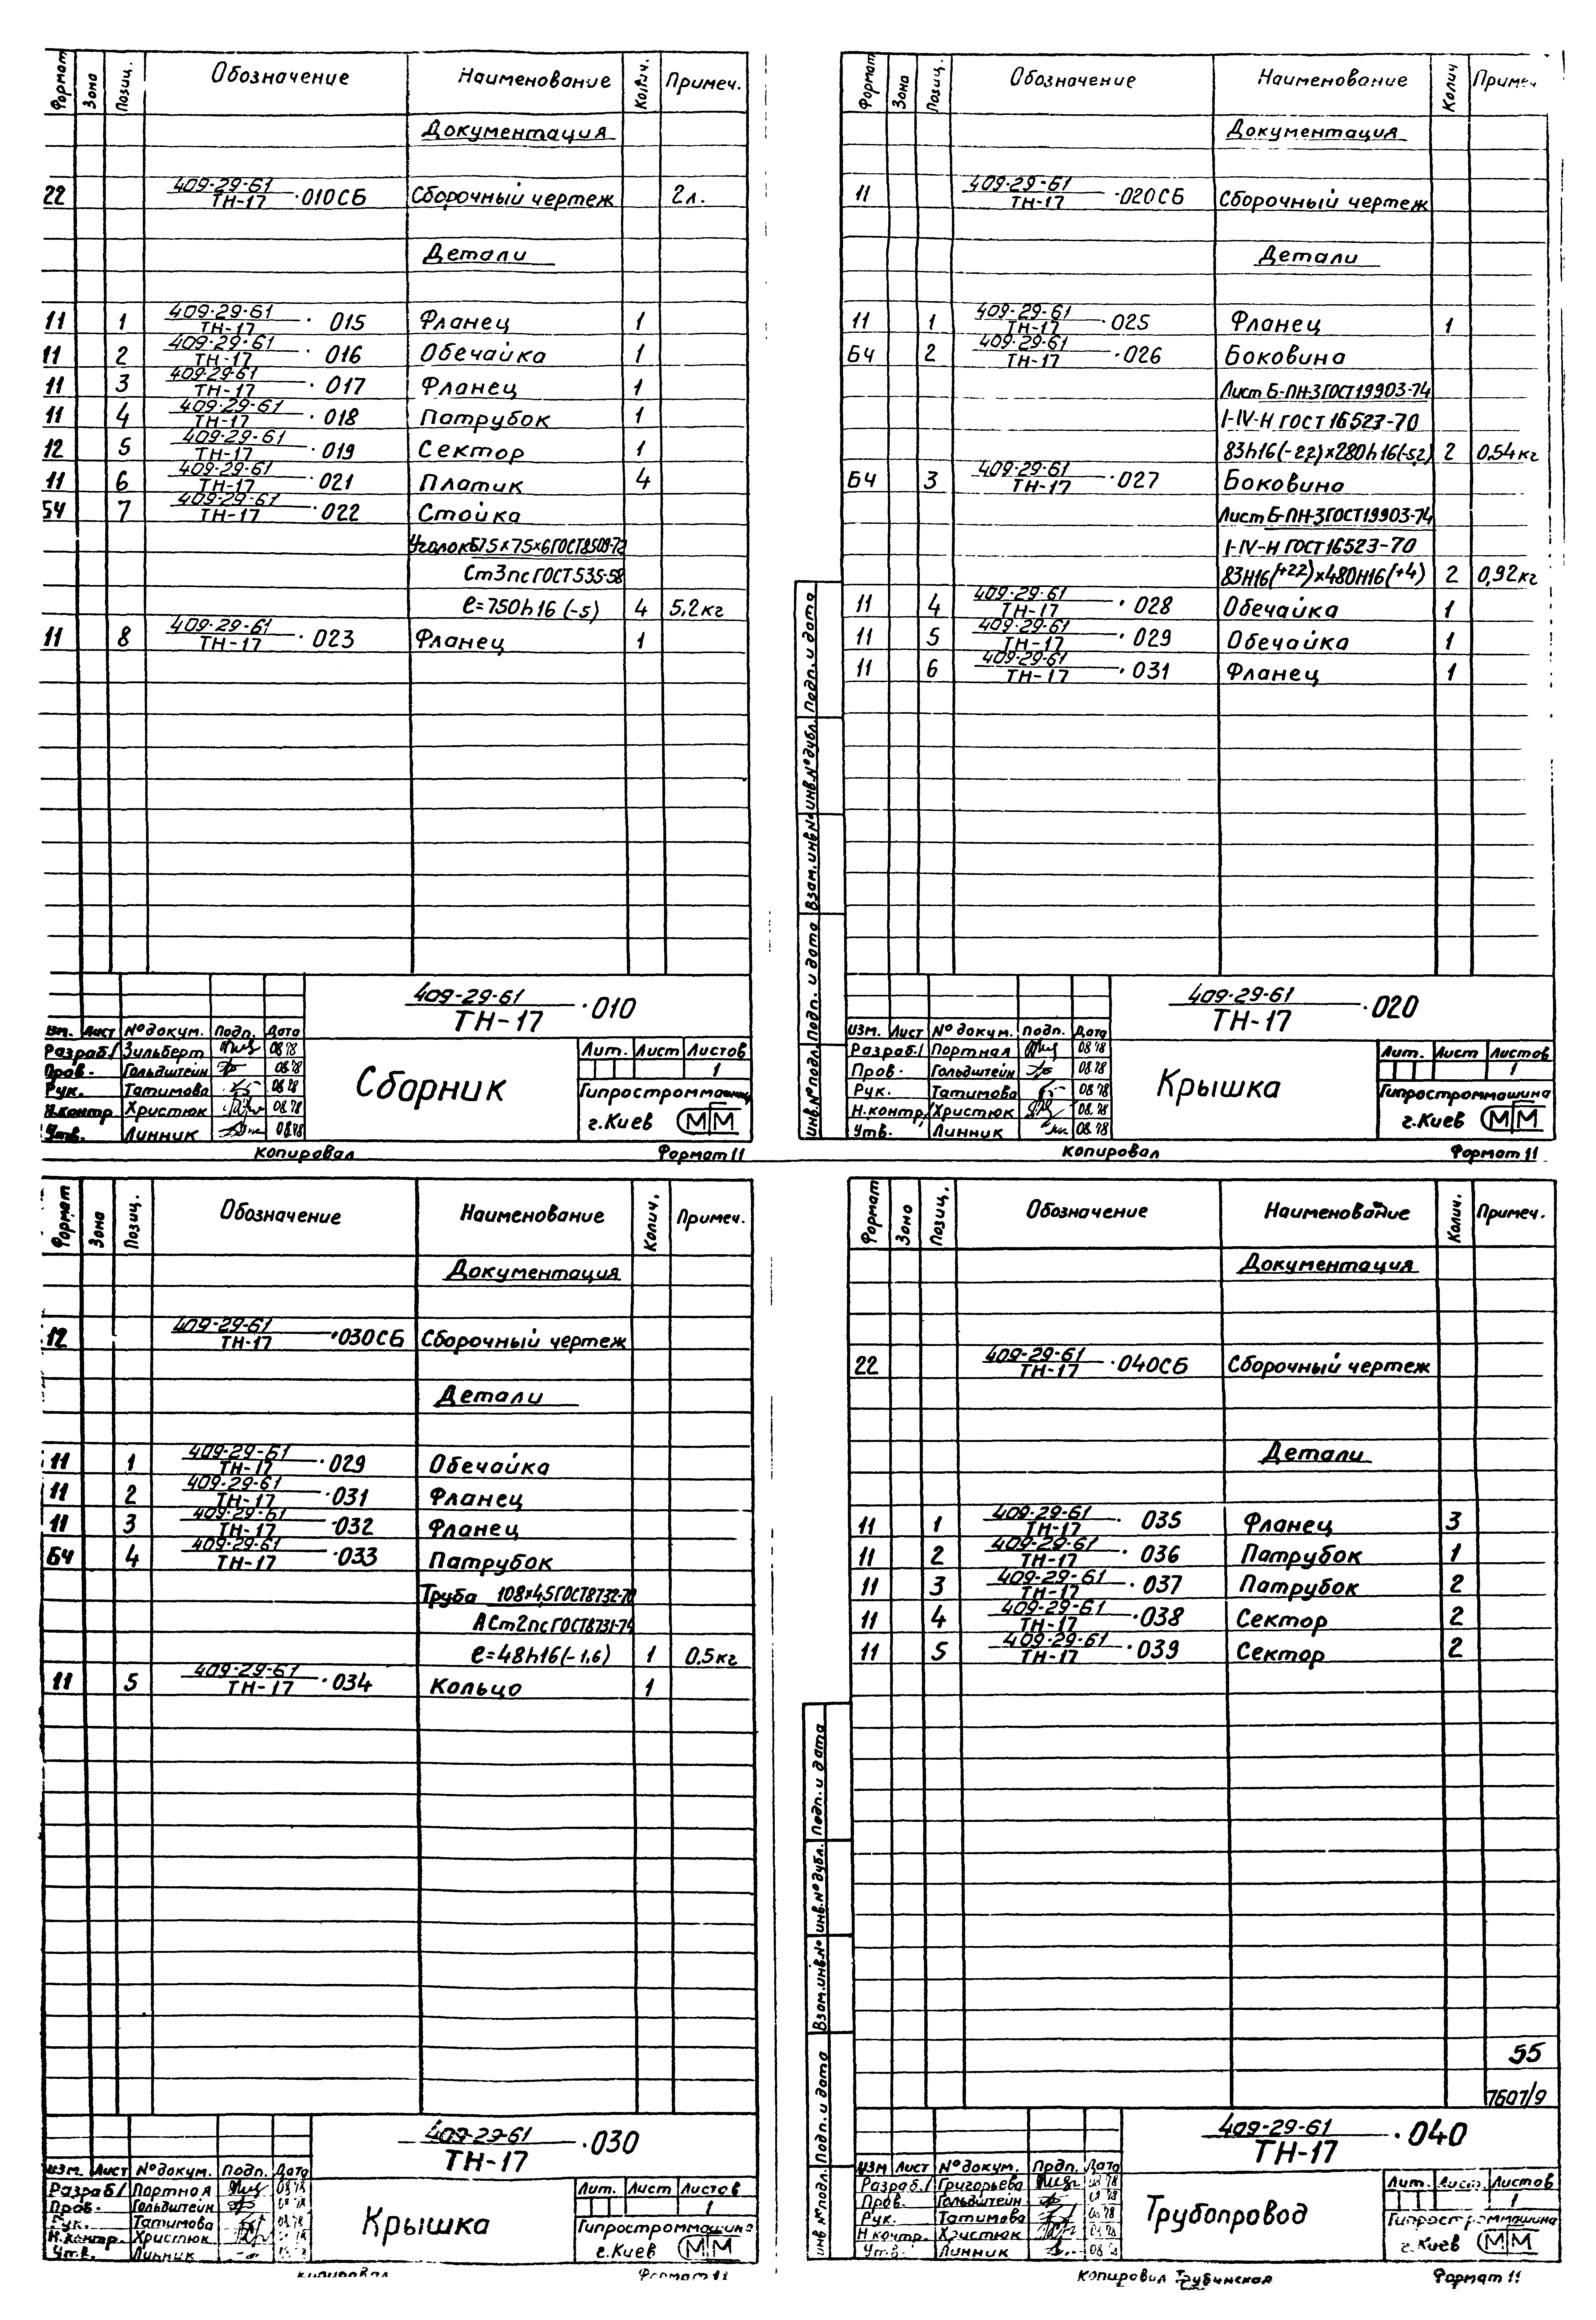 Формат Зона Позиц. Обозначение Наименование Колич. Примеч.
Документация
22 409-29-61/ТН-17 ·010СБ Сборочный чертеж 2л.
Детали
11 1 409-29-61/ТН-17 · 015 Фланец 1
11 2 409-29-61/ТН-17 · 016 Обечайка 1
11 3 409-29-61/ТН-17 · 017 Фланец 1
11 4 409-29-61/ТН-17 · 018 Патрубок 1
12 5 409-29-61/ТН-17 · 019 Сектор 1
11 6 409-29-61/ТН-17 · 021 Платик 4
БЧ 7 409-29-61/ТН-17 · 022 Стойка
Уголок Б75×75×6 ГОСТ8509-72
Ст3пс ГОСТ535-58
ℓ=750h16 (-5) 4 5,2кг
11 8 409-29-61/ТН-17 · 023 Фланец 1
409-29-61/ТН-17 ·010
Изм. Лист №докум. Подп. Дата
Разраб. Зильберт 08.78
Пров. Гольдштейн 08.78
Рук. Татимова 08.78
Н.контр. Христюк 08.78
Утв. Линник 08.78
Сборник
Лит. Лист Листов
1
Гипростроммашина
г.Киев ММ
Копировал Формат 11
Формат Зона Позиц. Обозначение Наименование Колич Примеч
Документация
11 409-29-61/ТН-17 ·020СБ Сборочный чертеж
Детали
11 1 409-29-61/ТН-17 ·025 Фланец 1
БЧ 2 409-29-61/ТН-17 ·026 Боковина
Лист Б-ПН-3 ГОСТ19903-74
I-IV-Н ГОСТ 16523-70
83h16(-2,2)×280h16(-5,2) 2 0,54кг
БЧ 3 409-29-61/ТН-17 ·027 Боковина
Лист Б-ПН-3 ГОСТ19903-74
I-IV-Н ГОСТ 16523-70
83Н16(+2,2)×480Н16(+4) 2 0,92кг
11 4 409-29-61/ТН-17 · 028 Обечайка 1
11 5 409-29-61/ТН-17 · 029 Обечайка 1
11 6 409-29-61/ТН-17 · 031 Фланец 1
Инв.№подл. Подп. и дата Взам.инв.№ Инв.№дубл. Подп. и дата
409-29-61/ТН-17 ·020
Изм. Лист №докум. Подп. Дата
Разраб. Портная 08.78
Пров. Гольдштейн 08.78
Рук. Татимова 08.78
Н.контр. Христюк 08.78
Утв. Линник 08.78
Крышка
Лит. Лист Листов
1
Гипростроммашина
г.Киев ММ
Копировал Формат 11
Формат Зона Позиц. Обозначение Наименование Колич. Примеч.
Документация
12 409-29-61/ТН-17 ·030СБ Сборочный чертеж
Детали
11 1 409-29-61/ТН-17 ·029 Обечайка
11 2 409-29-61/ТН-17 ·031 Фланец
11 3 409-29-61/ТН-17 ·032 Фланец
БЧ 4 409-29-61/ТН-17 ·033 Патрубок
Труба 108×4,5 ГОСТ8732-70
АСт2пс ГОСТ8731-74
ℓ=48h16(-1,6) 1 0.5кг
11 5 409-29-61/ТН-17 ·034 Кольцо 1
409-29-61/ТН-17 ·030
Изм. Лист №докум. Подп. Дата
Разраб. Портная 08.78
Пров. Гольдштейн
Рук. Татимова
Н.контр. Христюк
Утв. Линник
Крышка
Лит. Лист Листов
1
Гипростроммашина
г.Киев ММ
Копировал Формат 11
Формат Зона Позиц. Обозначение Наименование Колич. Примеч.
Документация
22 409-29-61/ТН-17 ·040СБ Сборочный чертеж
Детали
11 1 409-29-61/ТН-17 · 035 Фланец 3
11 2 409-29-61/ТН-17 · 036 Патрубок 1
11 3 409-29-61/ТН-17 ·037 Патрубок 2
11 4 409-29-61/ТН-17 ·038 Сектор 2
11 5 409-29-61/ТН-17 ·039 Сектор 2
55
7607/9
Инв №подл. Подп. и дата Взам.инв.№ Инв.№дубл. Подп. и дата
409-29-61/ТН-17 ·040
Изм Лист №докум. Подп. Дата
Разраб. Григорьева
Пров. Гольдштейн
Рук. Татимова
Н контр. Христюк
Утв. Линник
Трубопровод
Лит. Лист Листов
1
Гипростроммашина
г.Киев ММ
Копировал Трубинская Формат 11